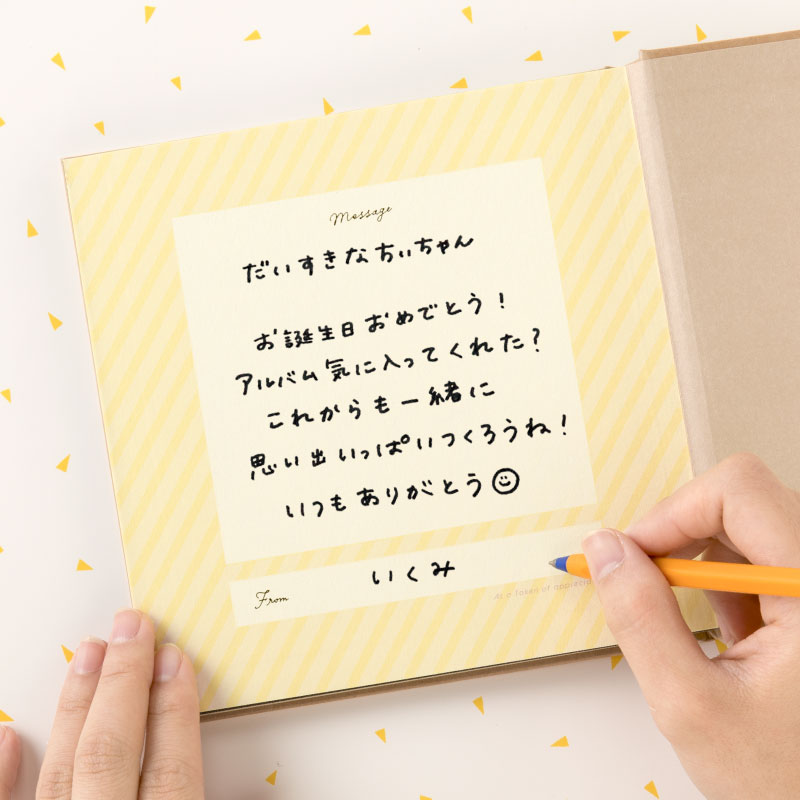 Message
だいすきなちぃちゃん
お誕生日おめでとう！
アルバム気に入ってくれた？
これからも一緒に
思い出いっぱいつくろうね！
いつもありがとう
From
いくみ
As a token of